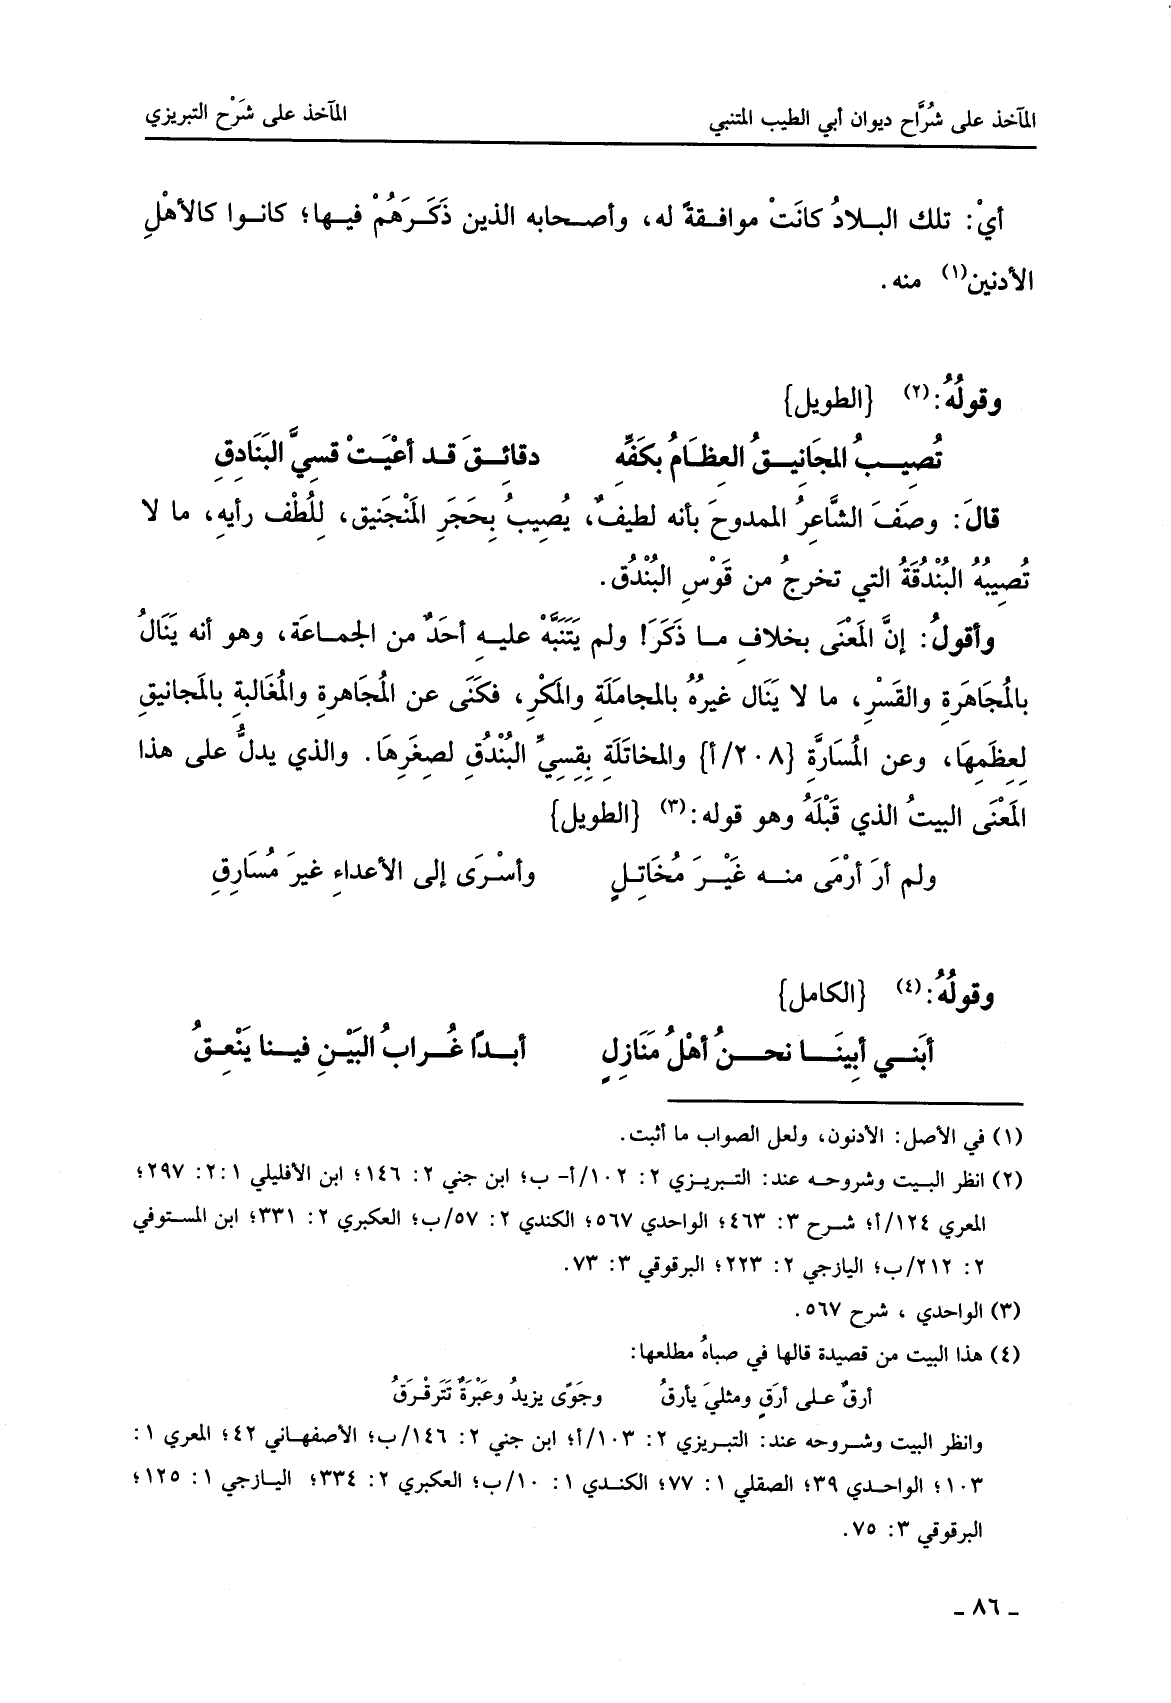 المآخذ على شُرَّاح ديوان أبي الطيب المتنبي المآخذ على شَرْح التبريزي
أيْ: تلك البلادُ كانَتْ موافقةً له، وأصحابه الذين ذَكَرَهُمْ فيها؛ كانوا كالأهْلِ
الأدنين(١) منه.
وقولُهُ:(٢) {الطويل}
تُصِيبُ المجَانِيقُ العِظَامُ بكَفِّهِ دقائِقَ قد أعْيَتْ قسِيَّ البَنَادِقِ
قالَ: وصَفَ الشَّاعِرُ الممدوحَ بأنه لطيفٌ، يُصِيبُ بحَجَرِ المَنْجَنيق، لِلُطْف رأيهِ، ما لا
تُصِيبُهُ البُنْدُقَةُ التي تخرجُ من قَوْسِ البُنْدُق.
وأقولُ: إنَّ المَعْنَى بخلافِ ما ذَكَرَ! ولم يَتَنَبَّهْ عليهِ أحَدٌ من الجماعَة، وهو أنه يَنَالُ
بالمُجَاهَرَةِ والقَسْرِ، ما لا يَنَال غيرُهُ بالمجاملَةِ والمَكْرِ، فكَنَى عن المُجاهرةِ والمُغَالبةِ بالمَجانيقِ
لعِظَمِهَا، وعن المُسَارَّةِ {٢٠٨/أ} والمخاتَلَةِ بِقِسِيِّ البُنْدُقِ لصِغَرِهَا. والذي يدلُّ على هذا
المَعْنَى البيتُ الذي قَبْلَهُ وهو قوله:(٣) {الطويل}
ولم أرَ أرْمَى منه غَيْرَ مُخَاتِلٍ وأسْرَى إلى الأعداءِ غيرَ مُسَارِقِ
وقولُهُ:(٤) {الكامل}
أبَني أبِينَا نحنُ أهْلُ مَنَازِلٍ أبدًا غُرابُ البَيْنِ فينا يَنْعِقُ
(١) في الأصل: الأدنون، ولعل الصواب ما أثبت.
(٢) انظر البيت وشروحه عند: التبريزي ٢: ١٠٢/أ- ب؛ ابن جني ٢: ١٤٦؛ ابن الأفليلي ٢:١: ٢٩٧؛
المعري ١٢٤/أ؛ شرح ٣: ٤٦٣؛ الواحدي ٥٦٧؛ الكندي ٢: ٥٧/ب؛ العكبري ٢: ٣٣١؛ ابن المستوفي
٢: ٢١٢/ب؛ اليازجي ٢: ٢٢٣؛ البرقوقي ٣: ٧٣.
(٣) الواحدي ، شرح ٥٦٧.
(٤) هذا البيت من قصيدة قالها في صباهُ مطلعها:
أرقٌ على أرَقٍ ومثليَ يأرقُ وجَوًى يزيدُ وعَبْرَةٌ تَتَرقْرَقُ
وانظر البيت وشروحه عند: التبريزي ٢: ١٠٣/أ؛ ابن جني ٢: ١٤٦/ب؛ الأصفهاني ٤٢؛ المعري ١:
١٠٣؛ الواحدي ٣٩؛ الصقلي ١: ٧٧؛ الكندي ١: ١٠/ب؛ العكبري ٢: ٣٣٤؛ اليازجي ١: ١٢٥؛
البرقوقي ٣: ٧٥.
ـ ٨٦ ـ